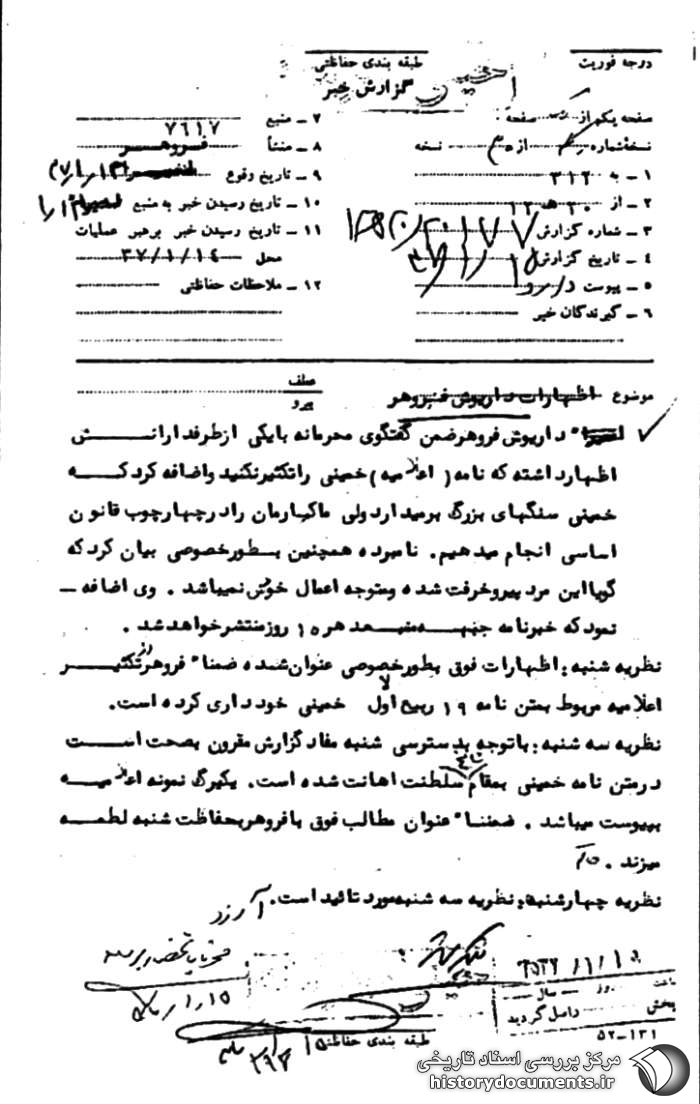 درجه فوریت
طبقه بندی حفاظتی
گزارش خبر
صفحه یکم از صفحه
نسخه شماره از نسخه
۱ ـ به ۳۱۲
۲ ـ از ۲۰ هـ ۱۲
۳ ـ شماره گزارش
۴ ـ تاریخ گزارش
۵ ـ پیوست دارد
۶ ـ گیرندگان خبر
۷ ـ منبع ۷۶۱۷
۸ ـ منشأ فروهر
۹ ـ تاریخ وقوع
۱۰ ـ تاریخ رسیدن خبر به منبع
۱۱ ـ تاریخ رسیدن خبر برهبر عملیات
محل ۳۷/۱/۱٤
۱۲ ـ ملاحظات حفاظتی
موضوع اظهارات داریوش فروهر
عطف
پیرو
داریوش فروهر ضمن گفتگوی محرمانه بایکی ازطرفدارانش
اظهارداشته که نامه (اعلامیه) خمینی راتکثیرنکنید واضافه کرد که
خمینی سنگهای بزرگ برمیدارد ولی ماکارمان رادرچهارچوب قانون
اساسی انجام میدهیم. نامبرده همچنین بطورخصوصی بیان کرد که
گویااین مرد پیروخرفت شده ومتوجه اعمال خوش نمیباشد . وی اضافه ـ
نمود که خبرنامه جبهه متحد هر ۱۵ روزمنتشرخواهد شد .
نظریه شنبه: اظهارات فوق بطورخصوصی عنوان شده ضمناً فروهر از تکثیر
اعلامیه مربوط بمتن نامه ۱۹ ربیع الاول خمینی خودداری کرده است.
نظریه سه شنبه: باتوجه بدسترسی شنبه مفاد گزارش مقرون بصحت است
درمتن نامه خمینی بمقام سلطنت اهانت شده است. یکبرگ نمونه اعلامیه
بپیوست میباشد . ضمناً عنوان مطالب فوق بافروهر بحفاظت شنبه لطمه
میزند.
نظریه چهارشنبه: نظریه سه شنبه مورد تائید است.
ساعت روز سال
بخش واصل گردید
طبقه بندی حفاظتی
۵۲-۱۳۱
مرکز بررسی اسناد تاریخی
historydocuments.ir